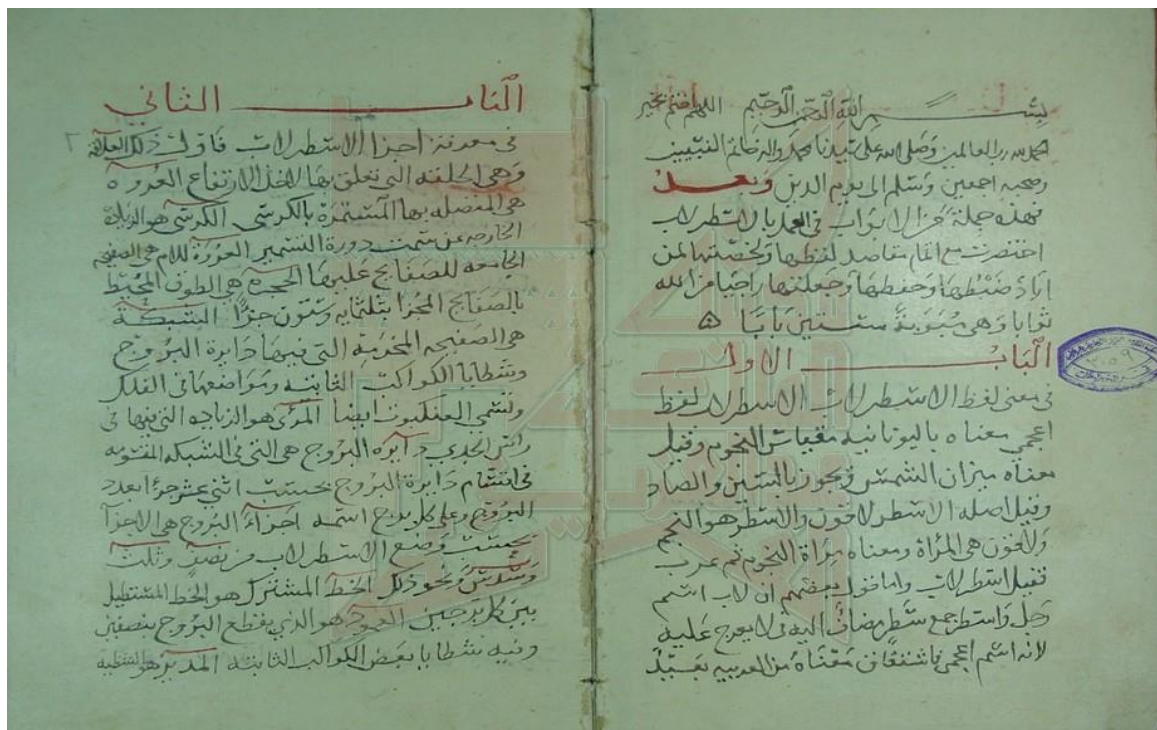 بسم الله الرحمن الرحيم اللهم اختم بخير
الحمد لله رب العالمين وصلى الله على سيدنا محمد واله خاتم النبيين
وصحبه اجمعين وسلم الى يوم الدين وبعد
فهذه جملة من الابواب في العمل بالاسطرلاب
اختصرت مع اتمام مقاصد لفظها ولخصتها لمن
اراد ضبطها وحفظها وجعلتها راجيا من الله
ثوابا وهي مبوبة ستين بابا
الباب الاول
في معنى لفظ الاسطرلاب الاسطرلاب لفظ
اعجمي معناه باليونانية مقياس النجوم وقيل
معناه ميزان الشمس ويجوز بالسين والصاد
وقيل اصله الاسطرلاقون والاسطر هو النجم
ولاقون هي المرأة ومعناه مرأة النجوم ثم عرب
فقيل اسطرلاب واما قول بعضهم ان لاب اسم
رجل واسطر جمع سطر مضاف اليه فلا يعرج عليه
لانه اسم اعجمي فاشتقاق معناه من العربية بعيد
الباب الثاني
في معرفة اجزا الاسطرلاب فاول ذلك العلاقة
وهي الحلقة التي تعلق بها لاخذ الارتفاع العروة
هي المتصله بها المستمرة بالكرسي الكرسي هو الزيادة
الخارجه عن سمت دورة هي الصفيحه
الجامعه للصفايح عليها الحجرة هي الطوق المحيط
بالصفايح المجزا بثلثمايه وستون جزا الشبكة
هي الصفيحه المخرمة التي فيها دايرة البروج
وشظايا الكواكب الثابتة ومواضعها في الفلك
وتسمي العنكبوت ايضا المرئ هو الزياده التي فيها في
راس الجدي دايرة البروج هي التي في الشبكه المقسومه
في اقسام دايرة البروج بحسب اثني عشر جزءا بعدد
البروج وعلى كل برج اسمه اجزاء البروج هي الاجزا
بحسب وضع الاسطرلاب من نصف وثلث
وسدس ونحو ذلك الخط المشترك هو الخط المستطيل
بين كل برجين العمود هو الذي يقطع البروج بنصفين
وفيه شظايا بعض الكواكب الثابتة المدير هو الشظيه